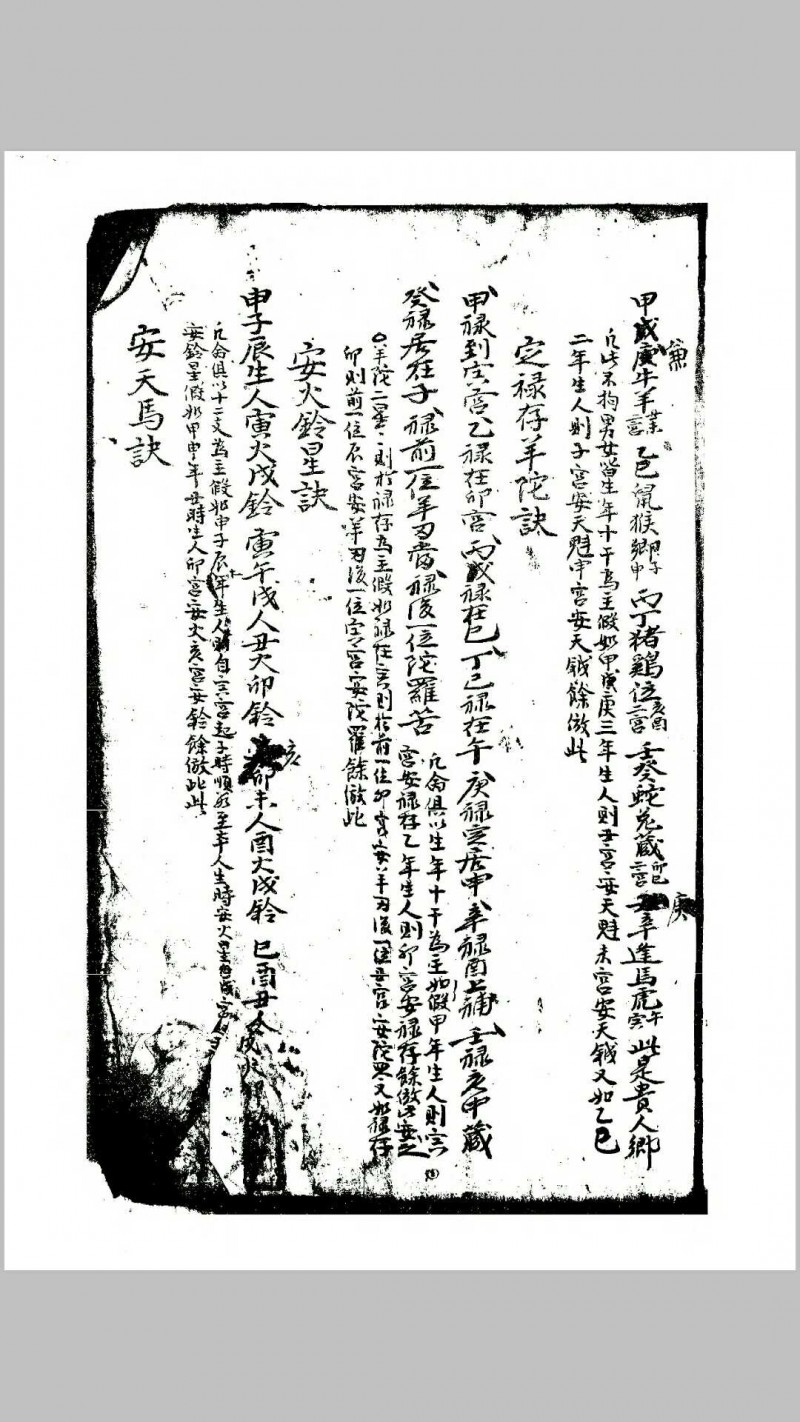 甲戊庚牛羊 未丑宮 乙己鼠猴鄉 子申 丙丁猪鷄位 亥酉二宮 壬癸蛇兔藏 卯巳二宮 辛逢馬虎 午寅 此是貴人鄉
兼
庚
凡此不拘男女當生年十干為主假如甲戊庚三年生人則丑宮安天魁未宮安天鉞又如乙己
二年生人則子宮安天魁申宮安天鉞餘倣此
定禄存羊陀訣
甲禄到寅宮乙禄在卯宮丙戊禄在巳丁己禄在午庚禄寅居申辛禄酉上補壬禄亥中藏
癸禄居在子禄前一位羊刃當禄後一位陀羅苦
凡命俱以生年十干為主如假甲年生人則寅
宮安禄存乙年生人則卯宮安禄存餘倣此安之
○羊陀二星則於禄存為主假如禄在寅則於前一位卯宮安羊刃後一位丑宮安陀羅又如禄存
卯則前一位辰宮安羊刃後一位寅宮安陀羅餘倣此
安火鈴星訣
申子辰生人寅火戌鈴 寅午戌人丑火卯鈴 亥卯未人酉火戌鈴 巳酉丑人
凡命俱以十二支為主假如申子辰年生人則自寅宮起子時順數至本人生時安火星
安鈴星假如甲申年丑時生人卯宮安火亥宮安鈴餘倣此
安天馬訣